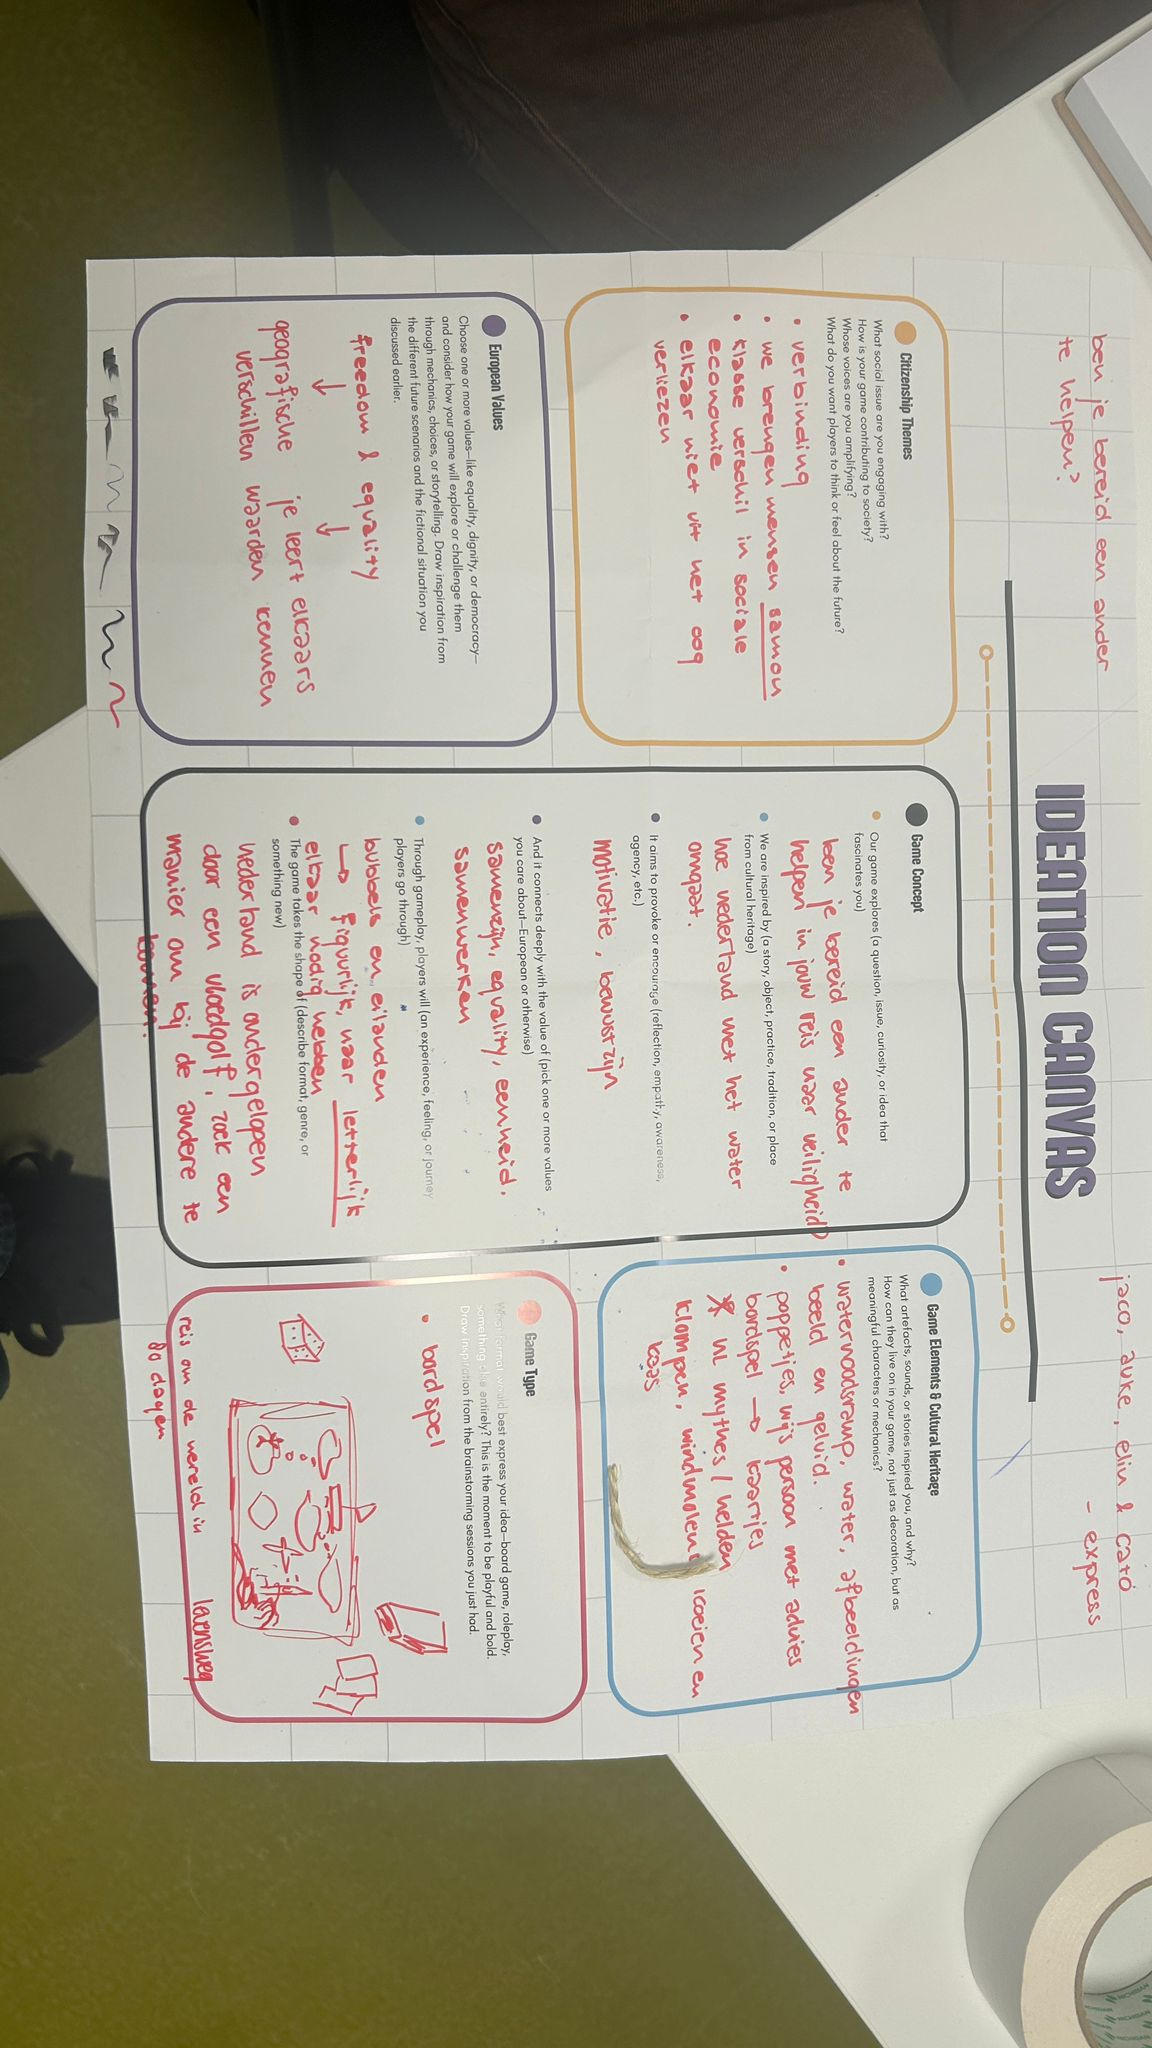 ben je bereid een ander
te helpen?
IDEATION CANVAS
jaco, auke, elin & cato
- express
Citizenship Themes
What social issue are you engaging with?
How is your game contributing to society?
Whose voices are you amplifying?
What do you want players to think or feel about the future?
• verbinding
• we brengen mensen samen
• klasse verschil in sociale
economie
• elkaar niet uit het oog
verliezen
European Values
Choose one or more values—like equality, dignity, or democracy—
and consider how your game will explore or challenge them
through mechanics, choices, or storytelling. Draw inspiration from
the different future scenarios and the fictional situation you
discussed earlier.
freedom & equality
↓ ↓
geografische je leert elkaars
verschillen waarden kennen
Game Concept
Our game explores (a question, issue, curiosity, or idea that
fascinates you)
ben je bereid een ander te
helpen in jouw reis naar veiligheid?
We are inspired by (a story, object, practice, tradition, or place
from cultural heritage)
hoe nederland met het water
omgaat.
It aims to provoke or encourage (reflection, empathy, awareness,
agency, etc.)
motivatie, bewustzijn
And it connects deeply with the value of (pick one or more values
you care about—European or otherwise)
samenzijn, equality, eenheid,
samenwerken
Through gameplay, players will (an experience, feeling, or journey
players go through)
bubbels en eilanden
→ figuurlijk naar letterlijk
elkaar nodig hebben
The game takes the shape of (describe format, genre, or
something new)
nederland is ondergelopen
door een vloedgolf, zoek een
manier om bij de andere te
komen.
Game Elements & Cultural Heritage
What artefacts, sounds, or stories inspired you, and why?
How can they live on in your game, not just as decoration, but as
meaningful characters or mechanics?
• waternoodsramp, water, afbeeldingen
beeld en geluid.
• poppetjes, wijs persoon met advies
bordspel → kaartjes
* NL mythes / helden
klompen, windmolens, koeien en
kaas
Game Type
What format would best express your idea—board game, roleplay,
something else entirely? This is the moment to be playful and bold.
Draw inspiration from the brainstorming sessions you just had.
• bordspel
reis om de wereld in
80 dagen
levensweg